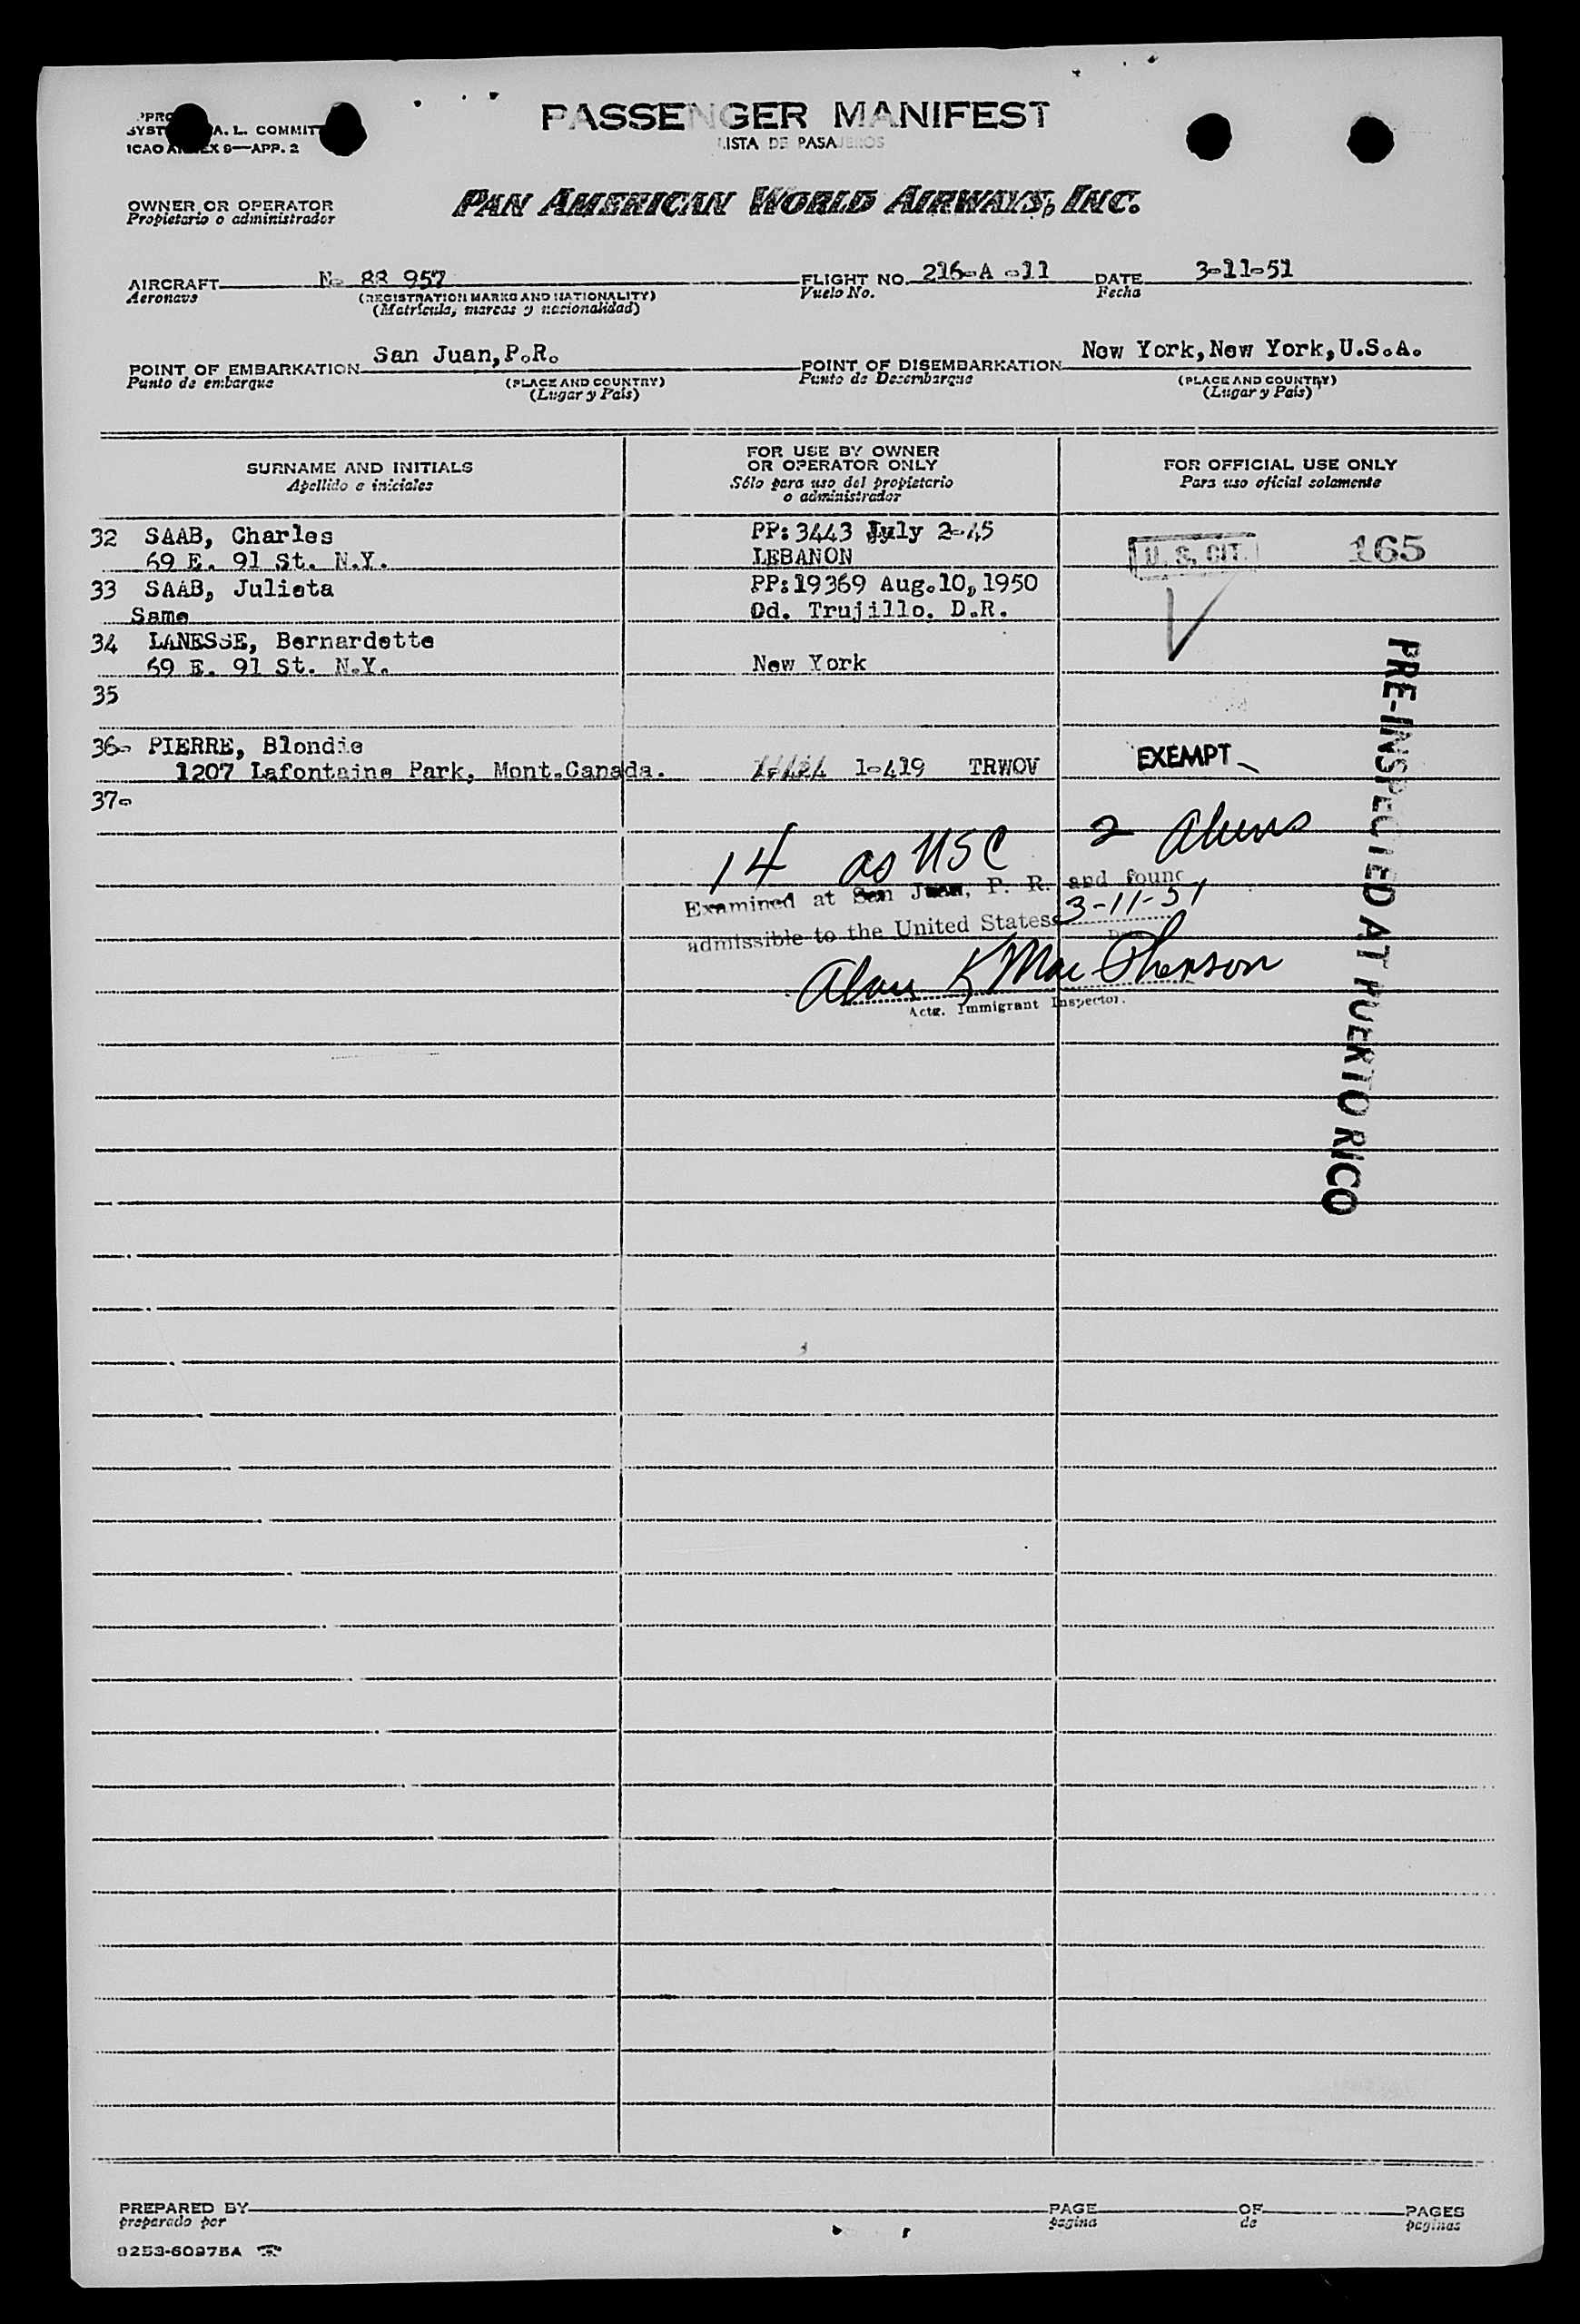 PASSENGER MANIFEST
LISTA DE PASAJEROS
A. L. COMMIT
ICAO ANNEX 9—APP. 2
OWNER OR OPERATOR
Propietario o administrador
PAN AMERICAN WORLD AIRWAYS, INC.
AIRCRAFT N- 88 957 FLIGHT NO. 216-A -11 DATE 3-11-51
Aeronave (REGISTRATION MARKS AND NATIONALITY) Vuelo No. Fecha
(Matrícula, marcas y nacionalidad)
POINT OF EMBARKATION San Juan, P.R. POINT OF DISEMBARKATION New York, New York, U.S.A.
Punto de embarque (PLACE AND COUNTRY) Punto de Desembarque (PLACE AND COUNTRY)
(Lugar y País) (Lugar y País)
SURNAME AND INITIALS FOR USE BY OWNER OR OPERATOR ONLY FOR OFFICIAL USE ONLY
Apellido e iniciales Sólo para uso del propietario o administrador Para uso oficial solamente
32 SAAB, Charles PP: 3443 July 2-45
69 E. 91 St. N.Y. LEBANON U. S. CIT. 165
33 SAAB, Julieta PP: 19369 Aug. 10, 1950
Same Cd. Trujillo. D.R.
34 LANESSE, Bernardette
69 E. 91 St. N.Y. New York
35
36- PIERRE, Blondie
1207 Lafontaine Park, Mont. Canada. 1-419 TRWOV EXEMPT
37-
14 as USC 2 Aliens
Examined at San Juan, P. R. and found
admissible to the United States 3-11-51
Date
Alan K MacPherson
Actg. Immigrant Inspector.
PRE-INSPECTED AT PUERTO RICO
PREPARED BY PAGE OF PAGES
preparado por pagina de paginas
0253-60975A